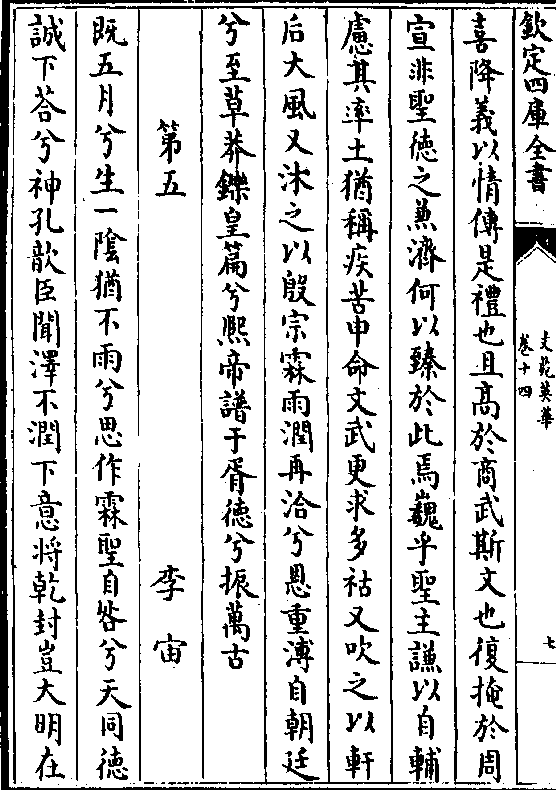 欽定四庫全書
文苑英華
卷十四
七
喜降義以情傳是禮也且髙於商武斯文也復掩於周
宣非聖徳之兼濟何以臻於此焉巍乎聖主謙以自輔
慮其率土猶稱疾苦申命文武更求多祜又吹之以軒
后大風又沐之以殷宗霖雨潤再洽兮恩重溥自朝廷
兮至草莽鑠皇篇兮熈帝譜于胥徳兮振萬古
第五 李宙
既五月兮生一隂猶不雨兮思作霖聖自咎兮天同徳
誠下荅兮神孔歆臣聞澤不潤下意将乾封豈大明在